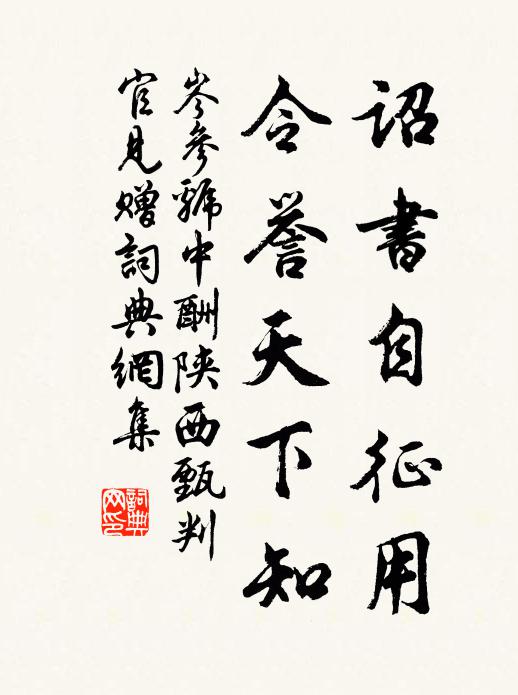 詔書自征用
令譽天下知
岑參虢中酬陝西甄判
官見贈詞典網集
詞典
网印